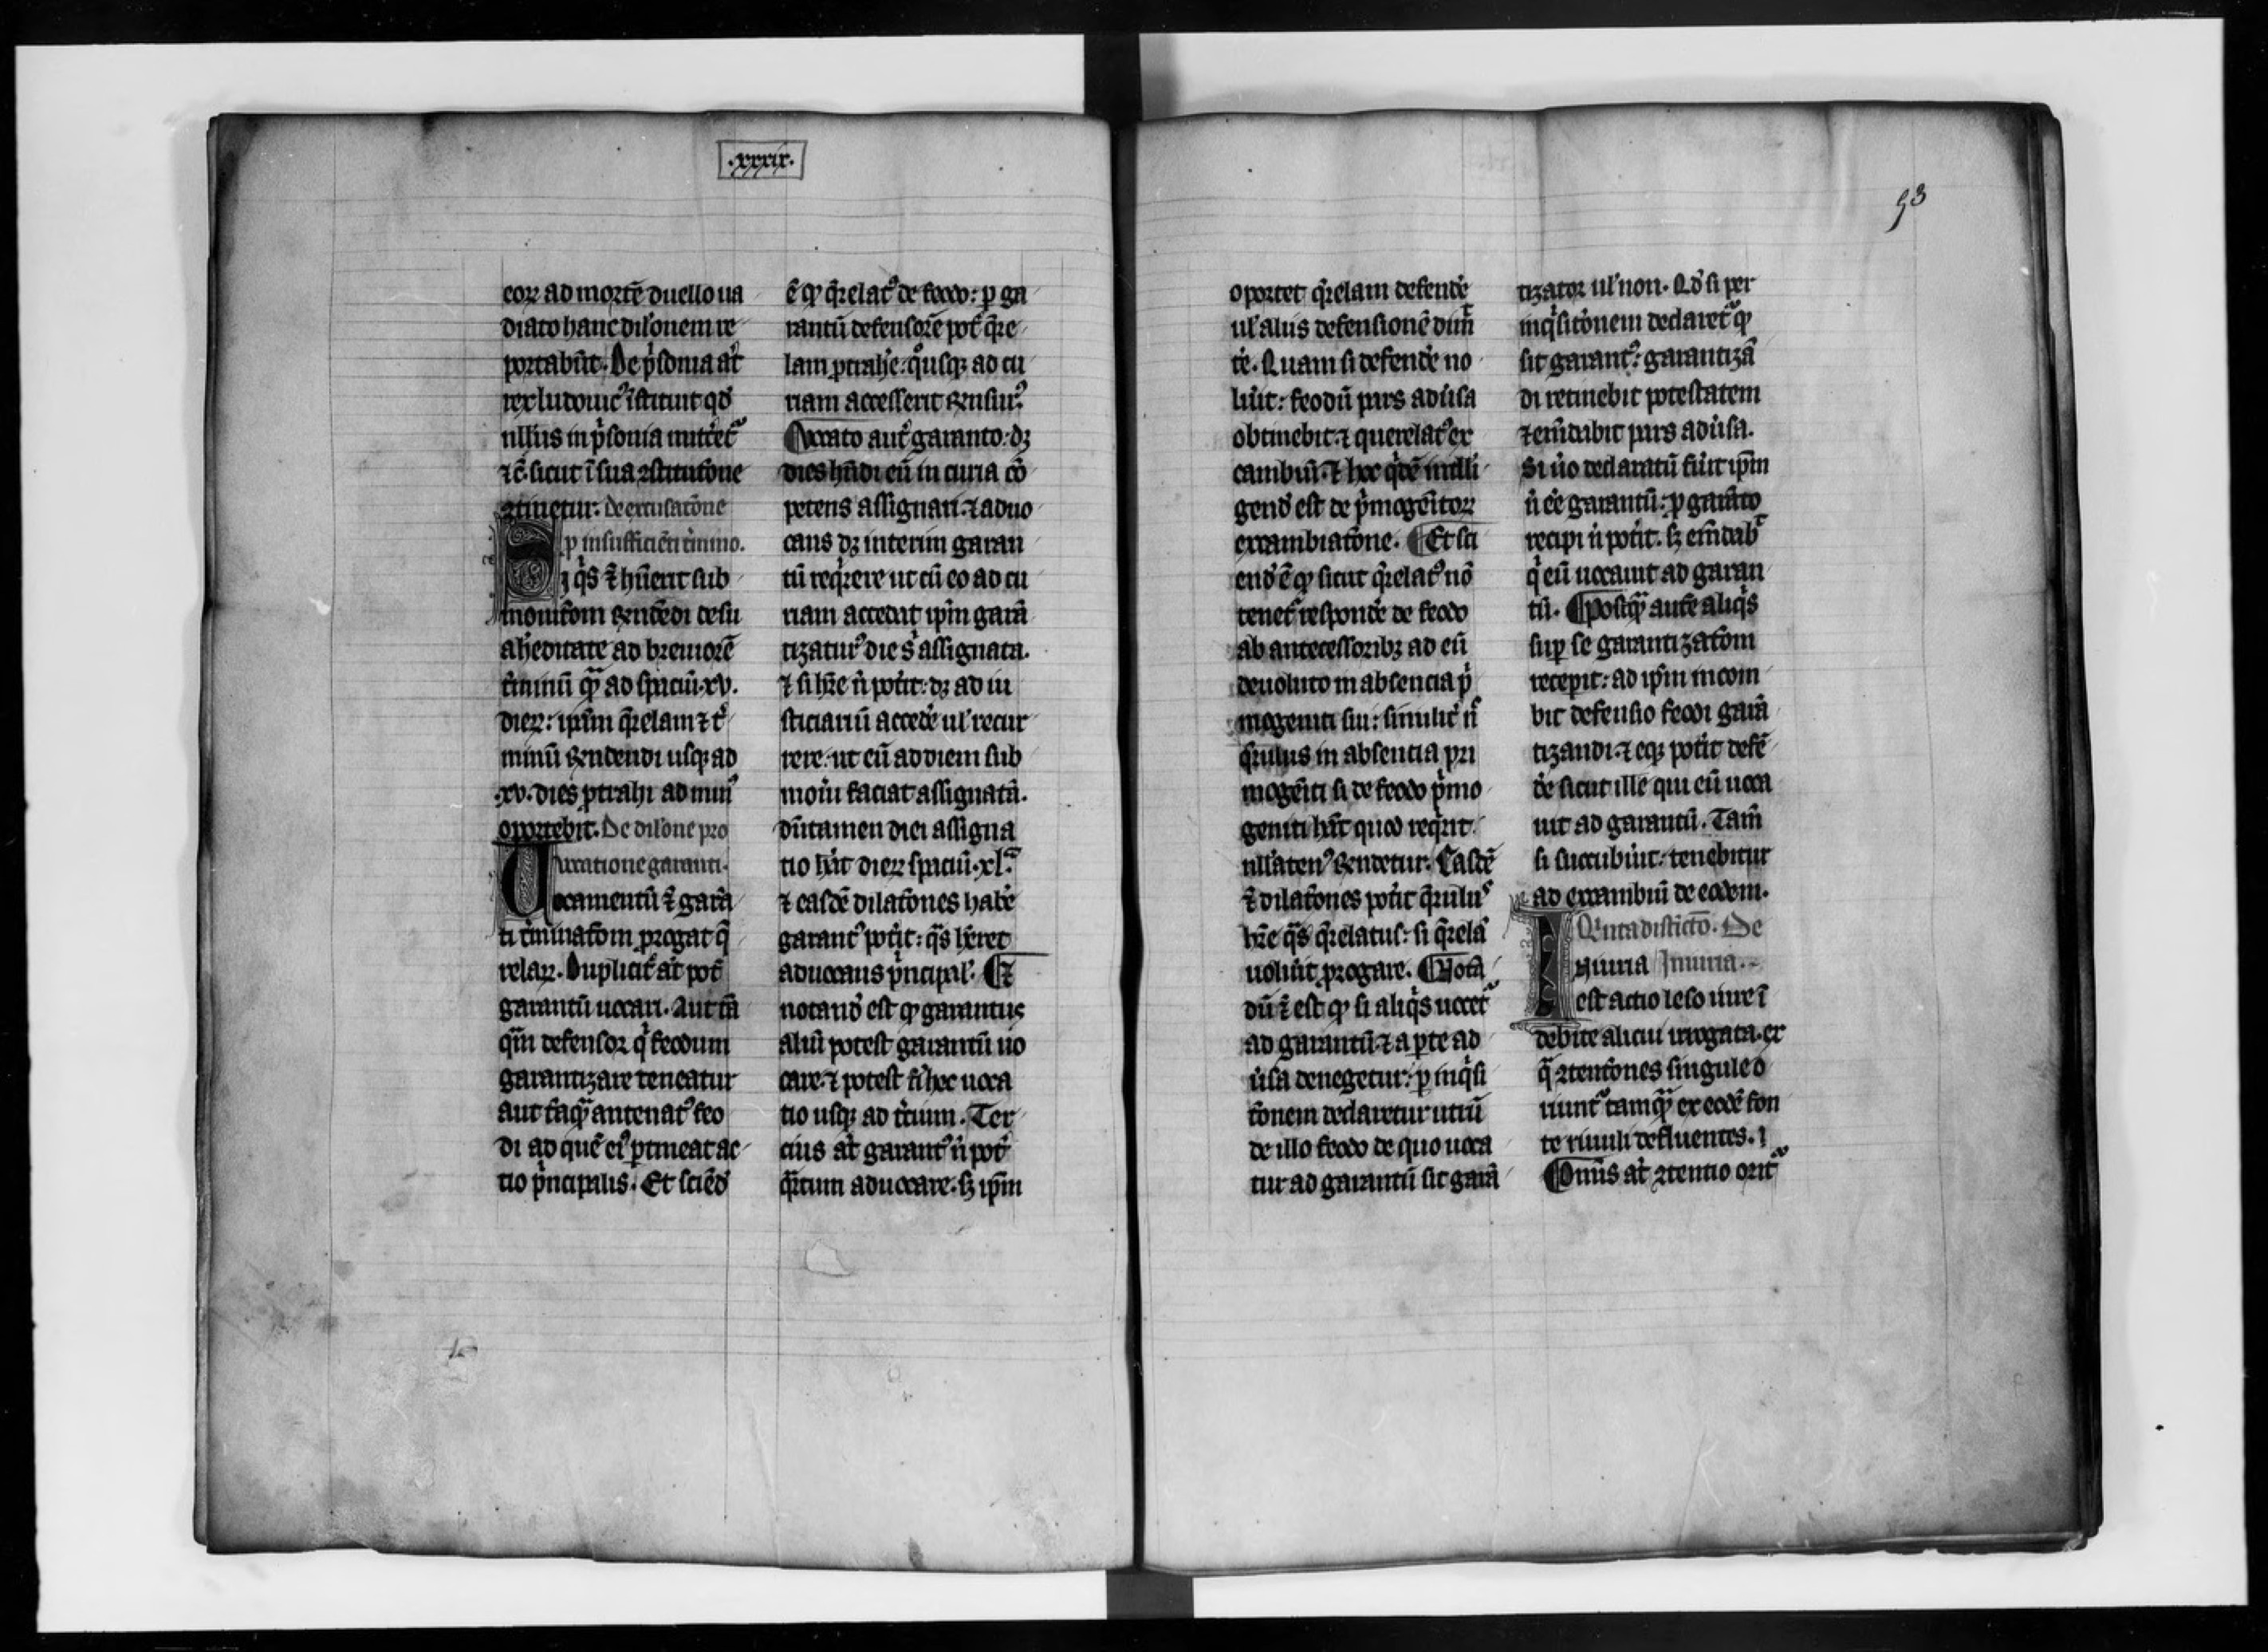 .xxxix.
eoꝝ ad mortē duello ua
diato hanc dil'onem re
portabūt. De p̓sonia at̓
rex ludouic᷒ īstituit qd̓
nllius in p̓sonia mittet᷑
⁊c̄. sicut ī sua ꝯstitutōne
ꝯtinetur. De excusatōne
ꝑ insufficiēti t̓mino.
Si q̓s ⁊̄ hūerit sub
monitōm ꝯtendēdi de su
a h̓editate ad breuiorē
t̓minū qͣ̄ ad spaciū .xv.
dieꝝ: ip̄m q̓relam ⁊ t̓
minū ꝯtendendi usqꝫ ad
.xv. dies ꝓtrahi ad min᷒
oportebit. De dil'one pro
Uocationegaranti.
ocamentū ⁊̄ garā
ti t̓minatōm ꝓrogat q̄
relaꝝ. Duplicit̓ at̓ pot̓
garantū uocari. Aut tā
qͣm defensor q̓ feodum
garantizare teneatur
aut tāqͣ̄ antenat᷒ feo
di ad quē ei᷒ ꝑtineat ac
tio p̓ncipalis. Et sciēd̓
ē qꝫ q̓relat᷒ de feodo: ꝑ ga
rantū defensorē pot̓ q̄re
lam ꝓtrah̓e: quousqꝫ ad cu
riam accesserit
Vocato aut̓ garanto: dꝫ
dies hn̄di eū in curia cō
petens assignari. ⁊ aduo
cans dꝫ interim garan
tū req̓rere ut cū eo ad cu
riam accedat ip̄m garā
tizatur᷒ die s̓ assignata.
⁊ si hr̄e n̄ pot̓it: dꝫ ad iu
sticiariū acced̓e ul' recur
rere: ut eū ad diem sub
moin̄ faciat assignatā.
dūtamen diei assigna
tio hēat dieꝝ spaciū .xl.ͣ
⁊ easdē dilatōnes habe
garant᷒ pot̓it: q̓s hēret
aduocans p̓ncipal'. Et
notand̓ est qꝫ garantus
aliū potest garantū uo
care. ⁊ potest fi̓ hec uoca
tio usqꝫ ad t̓cium. Ter
cius at̓ garant᷒ n̄ pot̓
q̓rtum aduocare. sꝫ ip̄m
93
oportet q̓relam defende̓
ul' alius defensionē dimit
te̓. Quam si defende̓ no
lūit: feodū pars adu̓sa
obtinebit. ⁊ querelat᷒ ex
cambiū. ⁊ hoc q̓dē intelli
gend̓ est de p̓mogēitoꝝ
excambiatōne. Et sci
end̓ ē qꝫ sicut q̓relat᷒ nō
tenet᷑ responde̓ de feodo
ab antecessoribꝫ ad eū
deuoluto in absencia p̓
mogeniti sui: similit̓ n̄
q̓rulus in absentia pri
mogēiti si de feodo p̓mo
geniti hāt quod req̓rit
nllaten᷒ ꝯtendetur. Easdē
⁊̄ dilatōnes pot̓it q̓rulu᷒
hr̄e q̓s q̓relatus: si q̓relā
uolūit ꝓrogare. Notā
dū ⁊̄ est qꝫ si aliq̓s uocet᷑
ad garantū. ⁊ a ꝑte ad
u̓sa denegetur: ꝑ inq̓si
tōnem declaretur utrū
de illo feodo de quo uoca
tur ad garantū sit garā
tizator ul' non. Qd̓ si per
inq̓sitōnem declaret᷑ qꝫ
sit garant᷒: garantizā
di retinebit potestatem
⁊ em̄dabit pars adu̓sa.
Si u̓o declaratū fu̓it ip̄m
n̄ eē garantū: ꝑ garāto
recipi n̄ pot̓it. sꝫ em̄dab᷑
q̓ eū uocauit ad garan
tū. Postqͣ̄ aute aliq̓s
sup se garantizatōm
recepit: ad ip̄m incom
bit defensio feodi garā
tizandi. ⁊ eqꝫ pot̓it defē
de̓ sicut ille qui eū uoca
uit ad garantū. Tam̄
si succubūit: tenebitur
ad excambiū de eodem.
Qu̓nta distictō. De
Iniuria Iniuria.
est actio leso iure ī
debite alicui irrogata. ex
q̄ ꝯtentōnes singule o
riunt᷑ tamqͣ̄ ex eodē fon
te riuuli defluentes. ⁊
Omīs at̓ ꝯtentio orit᷑